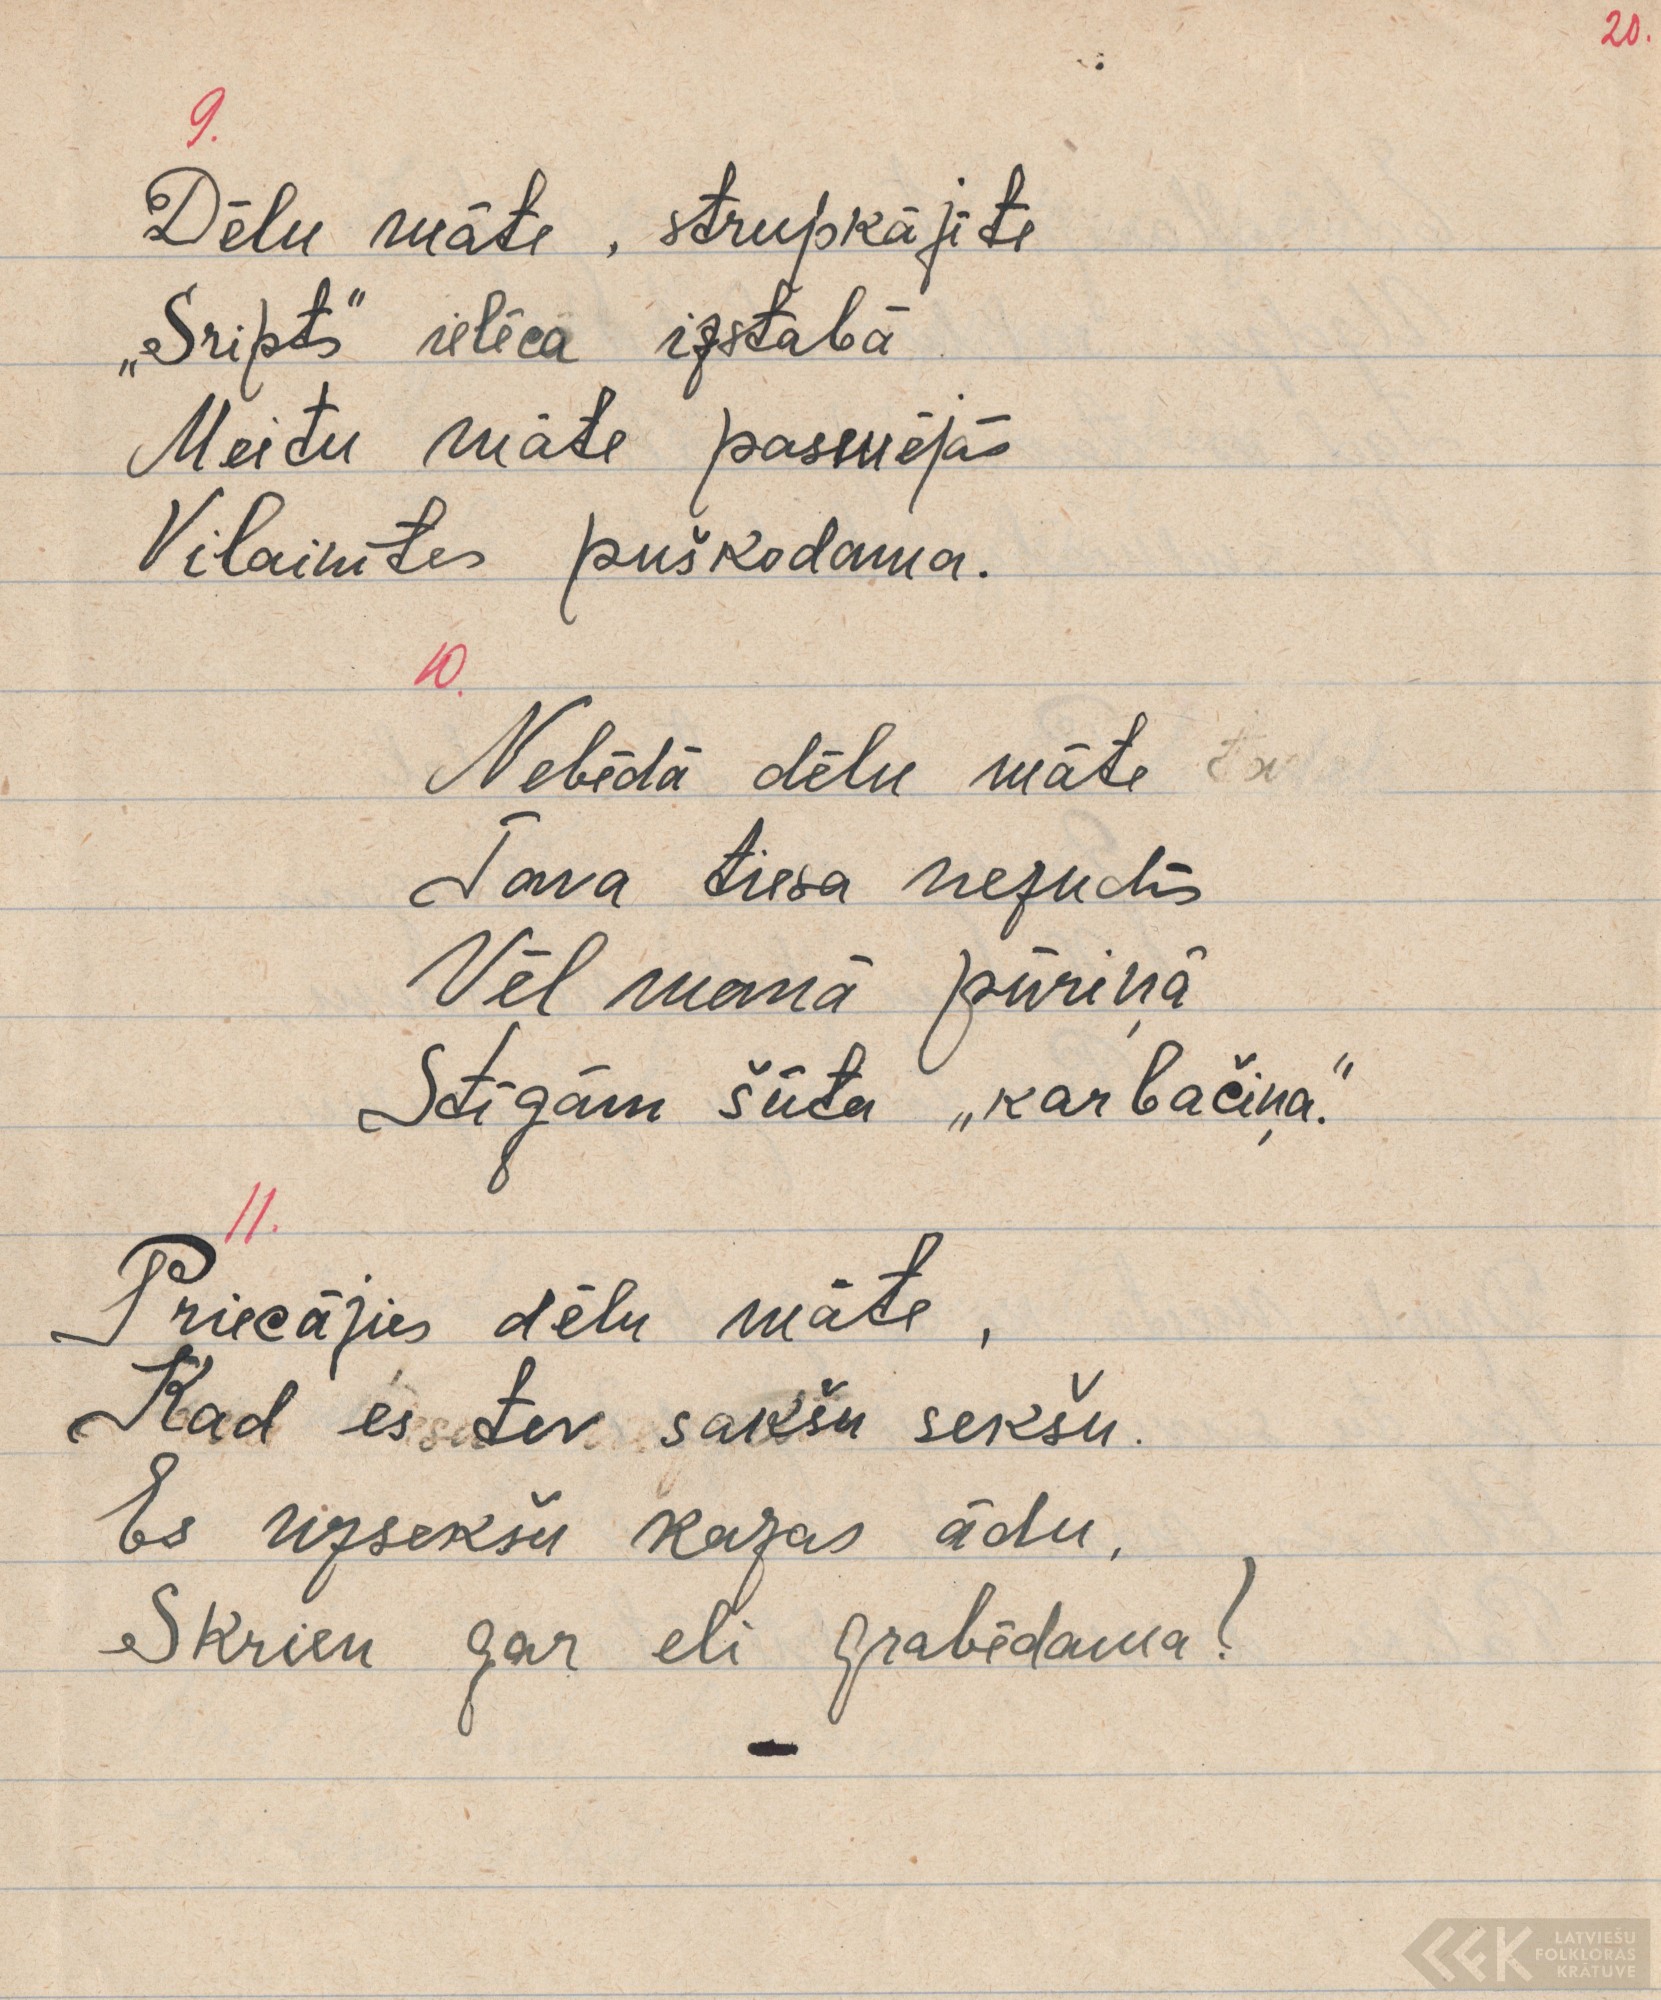 20.
9.
Dēlu māte, strupkājīte
„Sripts" ielēca izstabā
Meitu māte pasmējās
Vilainītes puškodama.
10.
Nebēdā dēlu māte
Tava tiesa nezudīs
Vēl manā pūriņā
Stīgām šūta „karbačiņa."
11.
Priecājies dēlu māte,
Kad es tev sakšu sekšu.
Es uzsekšu kazas ādu,
Skrien gar eli grabēdama!
LATVIEŠU
FOLKLORAS
KRĀTUVE